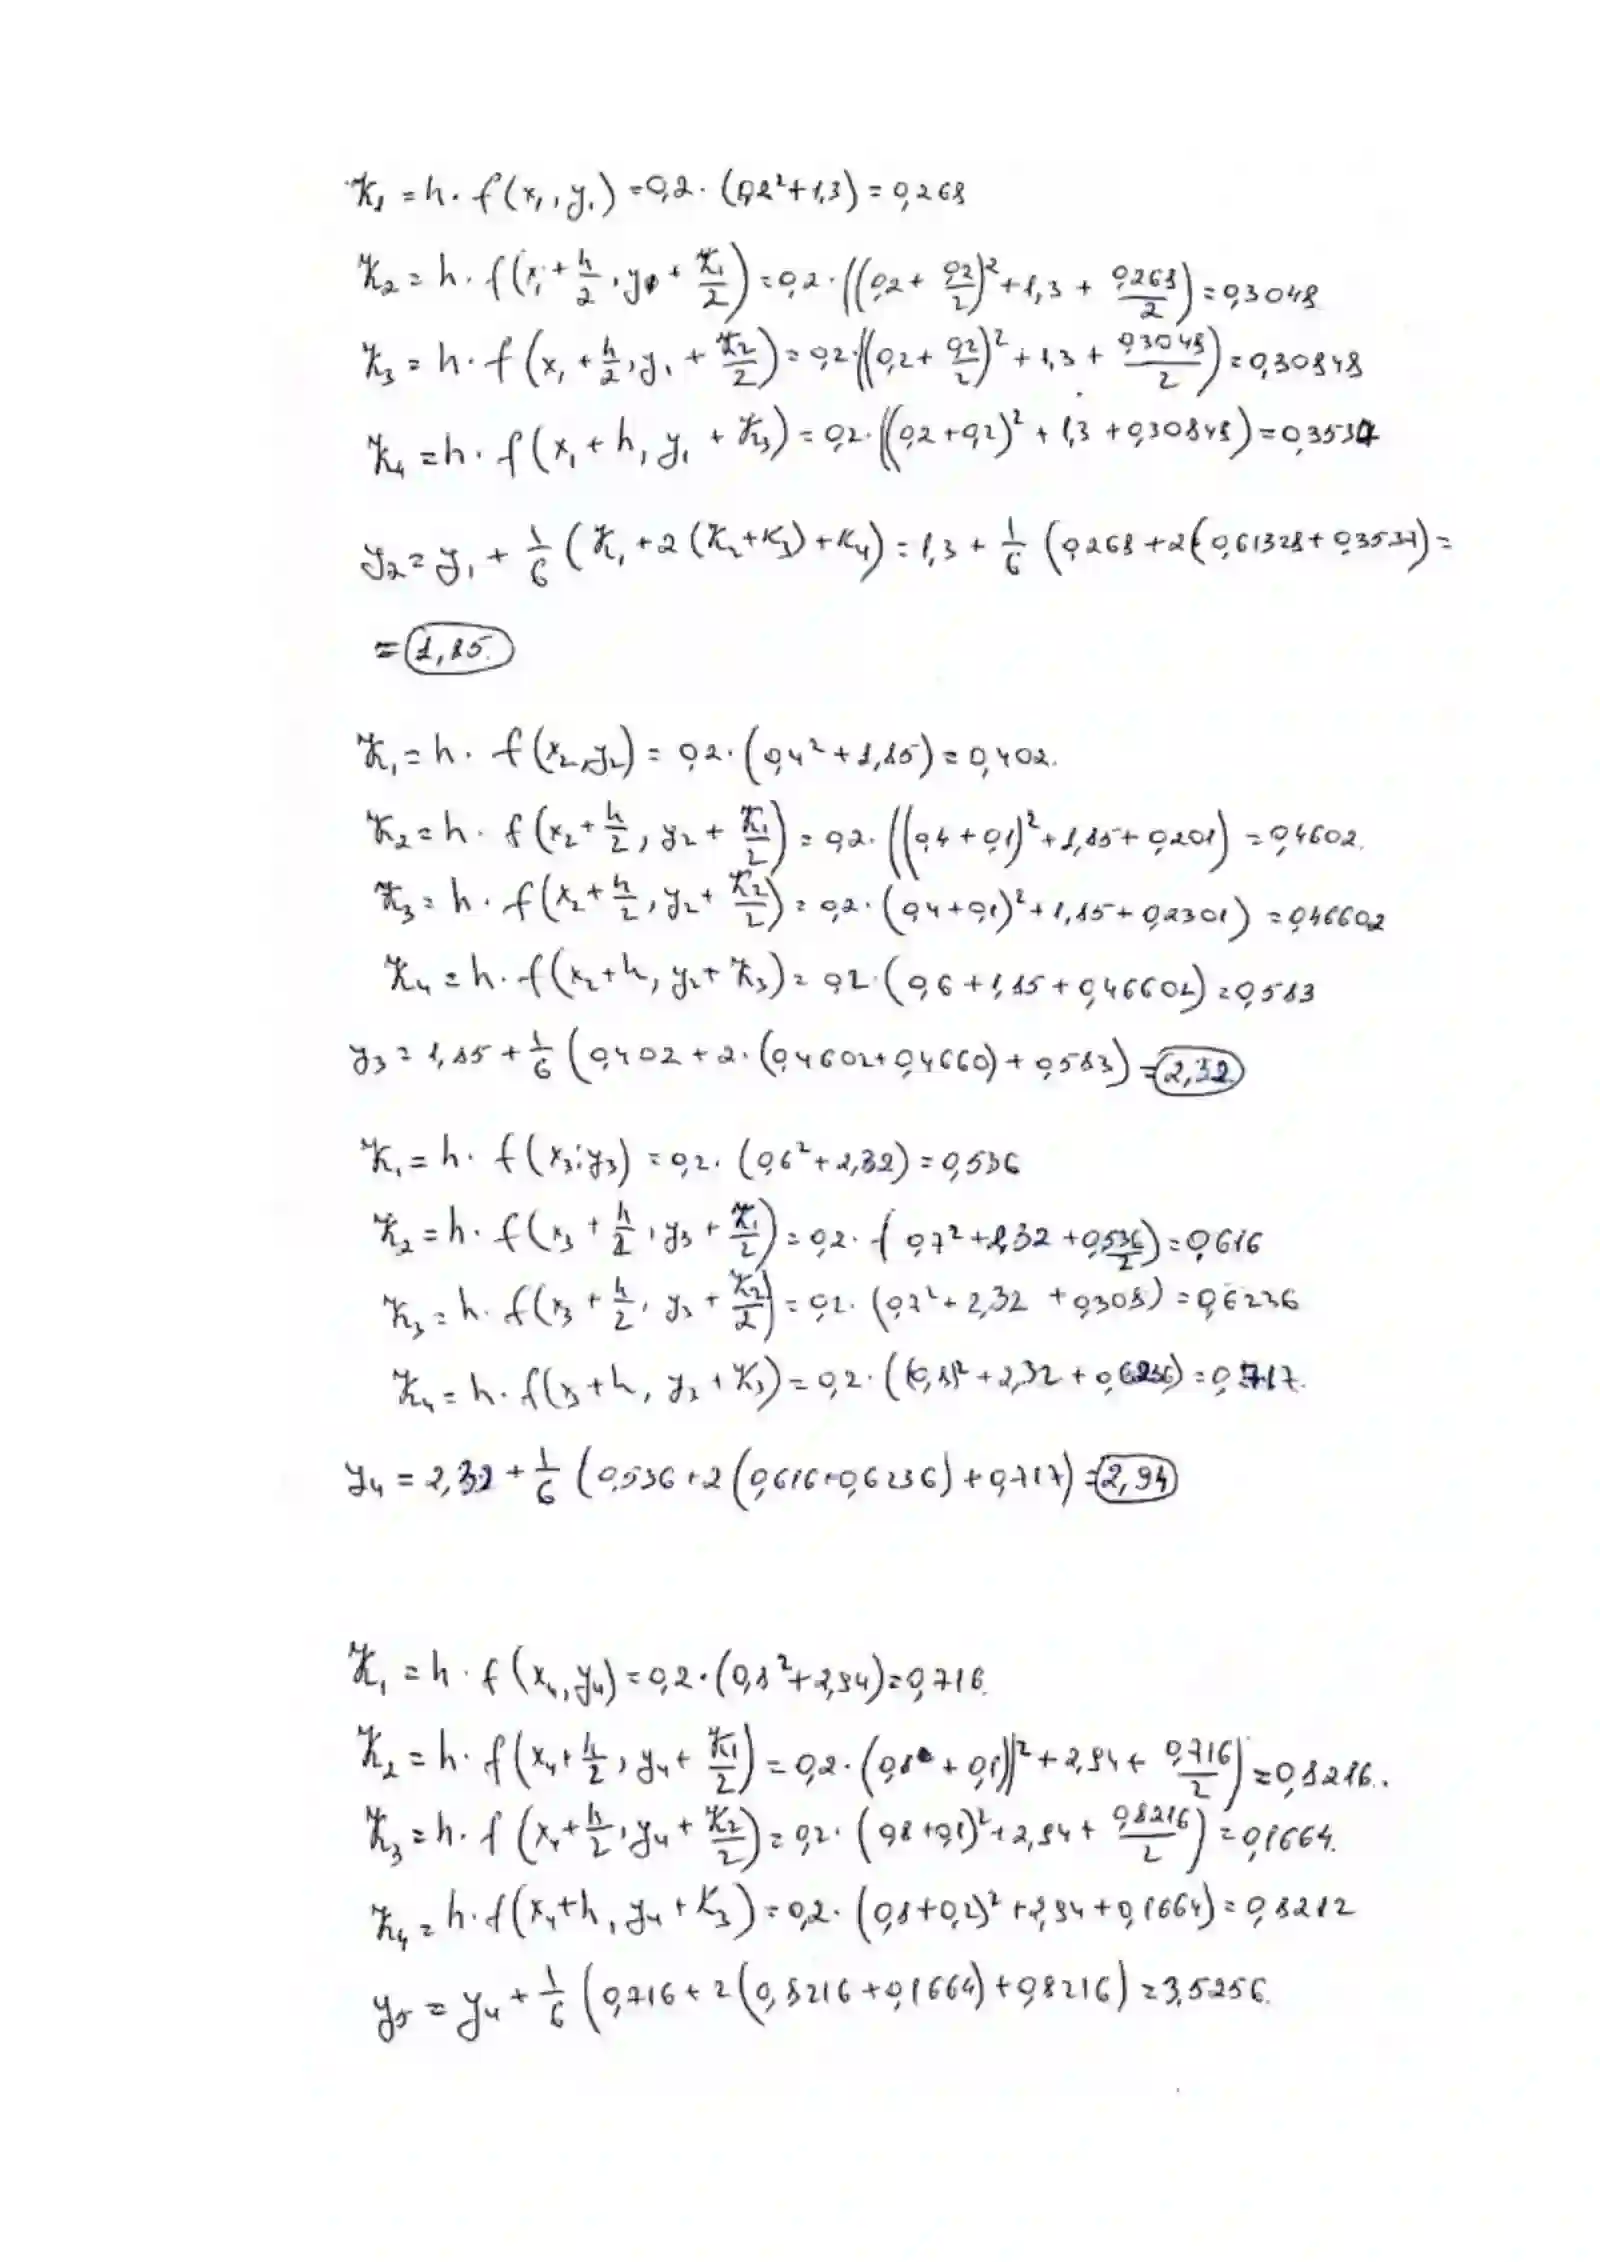 K₁ = h · f(x₁, y₁) = 0,2 · (0,2² + 1,3) = 0,268
K₂ = h · f(x₁ + h/2, y₁ + K₁/2) = 0,2 · ((0,2 + 0,2/2)² + 1,3 + 0,268/2) = 0,3048
K₃ = h · f(x₁ + h/2, y₁ + K₂/2) = 0,2 · ((0,2 + 0,2/2)² + 1,3 + 0,3048/2) = 0,30848
K₄ = h · f(x₁ + h, y₁ + K₃) = 0,2 · ((0,2 + 0,2)² + 1,3 + 0,30848) = 0,3537
y₂ = y₁ + 1/6 (K₁ + 2(K₂ + K₃) + K₄) = 1,3 + 1/6 (0,268 + 2(0,61328 + 0,3537) =
= 1,85.
K₁ = h · f(x₂, y₂) = 0,2 · (0,4² + 1,85) = 0,402.
K₂ = h · f(x₂ + h/2, y₂ + K₁/2) = 0,2 · ((0,4 + 0,1)² + 1,85 + 0,201) = 0,4602.
K₃ = h · f(x₂ + h/2, y₂ + K₂/2) = 0,2 · (0,4 + 0,1)² + 1,85 + 0,2301) = 0,46602
K₄ = h · f(x₂ + h, y₂ + K₃) = 0,2 · (0,6 + 1,85 + 0,46602) = 0,583
y₃ = 1,85 + 1/6 (0,402 + 2 · (0,4602 + 0,4660) + 0,583) = 2,32
K₁ = h · f(x₃; y₃) = 0,2 · (0,6² + 2,32) = 0,536
K₂ = h · f(x₃ + h/2, y₃ + K₁/2) = 0,2 · (0,7² + 2,32 + 0,536/2) = 0,616
K₃ = h · f(x₃ + h/2, y₃ + K₂/2) = 0,2 · (0,7² + 2,32 + 0,308) = 0,6236
K₄ = h · f(x₃ + h, y₃ + K₃) = 0,2 · ((0,8)² + 2,32 + 0,6236) = 0,717.
y₄ = 2,32 + 1/6 (0,536 + 2(0,616 + 0,6236) + 0,717) = 2,94
K₁ = h · f(x₄, y₄) = 0,2 · (0,8² + 2,94) = 0,716.
K₂ = h · f(x₄ + h/2, y₄ + K₁/2) = 0,2 · (0,8 + 0,1)² + 2,94 + 0,716/2) = 0,8216.
K₃ = h · f(x₄ + h/2, y₄ + K₂/2) = 0,2 · (0,8 + 0,1)² + 2,94 + 0,8216/2) = 0,1664.
K₄ = h · f(x₄ + h, y₄ + K₃) = 0,2 · (0,8 + 0,2)² + 2,94 + 0,1664) = 0,8212
y₅ = y₄ + 1/6 (0,716 + 2(0,8216 + 0,1664) + 0,8216) = 3,5256.